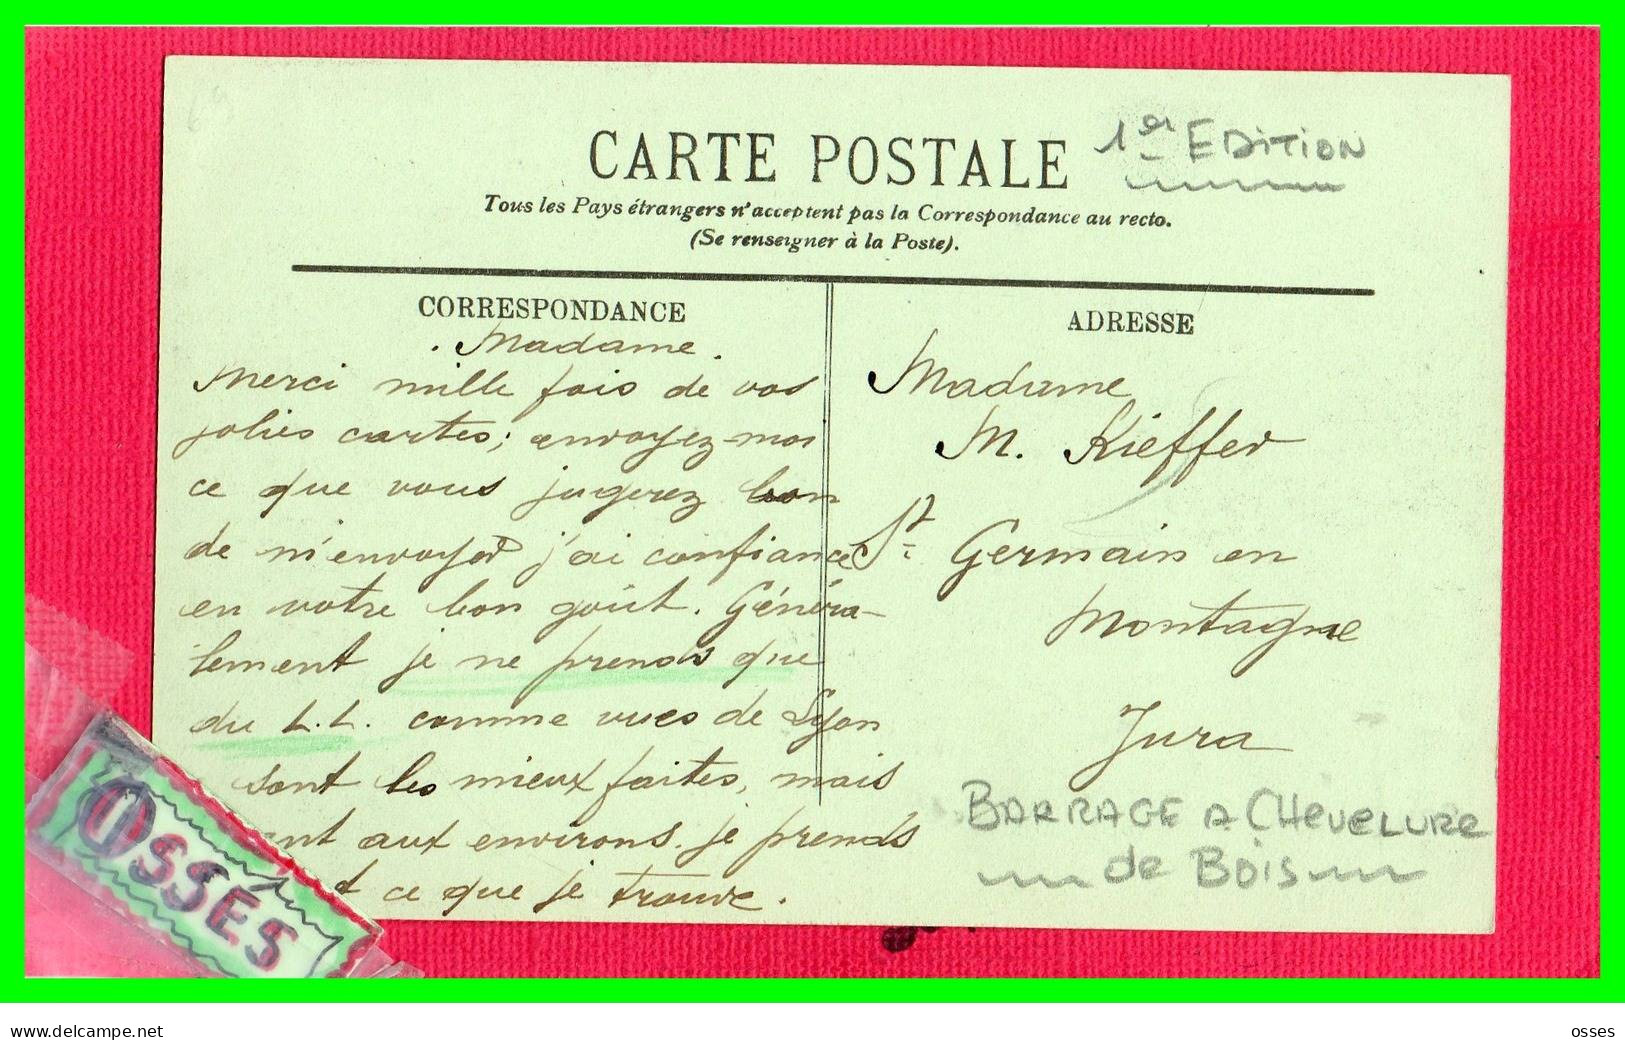 CARTE POSTALE
1er EDITION
Tous les Pays étrangers n'acceptent pas la Correspondance au recto.
(Se renseigner à la Poste).
CORRESPONDANCE
Madame.
Merci mille fois de vos
jolies cartes; envoyez-moi
ce que vous jugerez bon
de m'envoyer j'ai confiance
en votre bon goût. Généra-
lement je ne prends que
du L.L. comme vues de Lyon
sont les mieux faites, mais
aux environs. je prends
ce que je trouve.
ADRESSE
Madame
M. Kieffer
St Germain en
Montagne
Jura
BARRAGE A CHEVELURE
de BOIS
OSSÉS
www.delcampe.net
osses